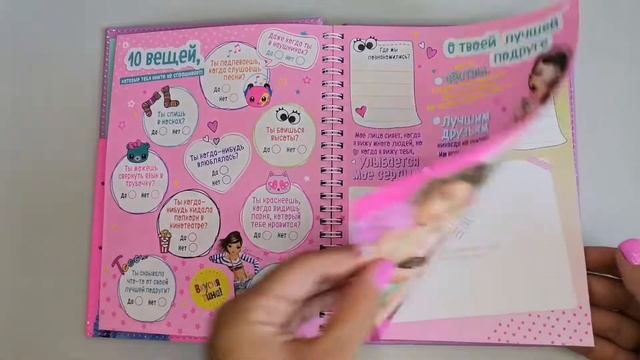 10 ВЕЩЕЙ,
которые тебя никто не спрашивает!
Даже когда ты
в наушниках?
Да Нет
Ты подпеваешь,
когда слушаешь
песни?
Да
Нет
Ты спишь
в носках?
Да Нет
Ты боишься
высоты?
Да Нет
Ты когда-нибудь
влюблялась?
Да Нет
Ты можешь
свернуть язык в
трубочку?
Да Нет
Ты когда-
нибудь кидала
попкорн в
кинотеатре?
Да
Нет
Ты краснеешь,
когда видишь
парня, который
тебе нравится?
Да
Нет
Ты скрывала
что-то от своей
лучшей подруги?
Да Нет
Вкусня
тина!
Где мы
познакомились?
О твоей лучшей
подруге
Лучшим
друзьям
никогда не
Мое лицо сияет, когда
я вижу много людей, но
когда я вижу тебя,
Улыбается
мое сердце